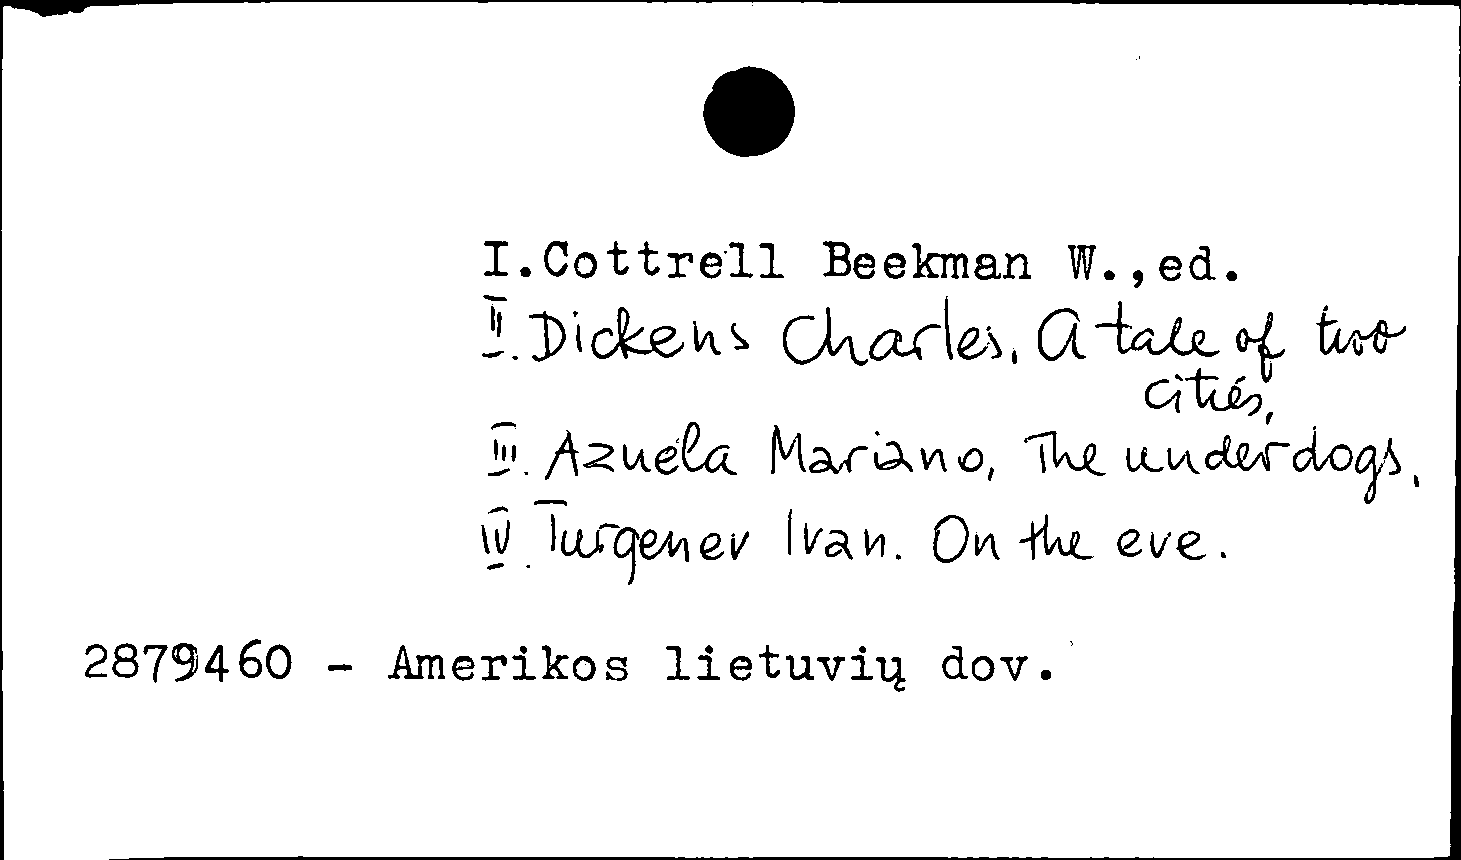 I.Cottrell Beekman W.,ed.
II. Dickens Charles. A tale of two
cities,
III. Azuela Mariano, The underdogs.
IV. Turgenev Ivan. On the eve.
2879460 - Amerikos lietuvių dov.